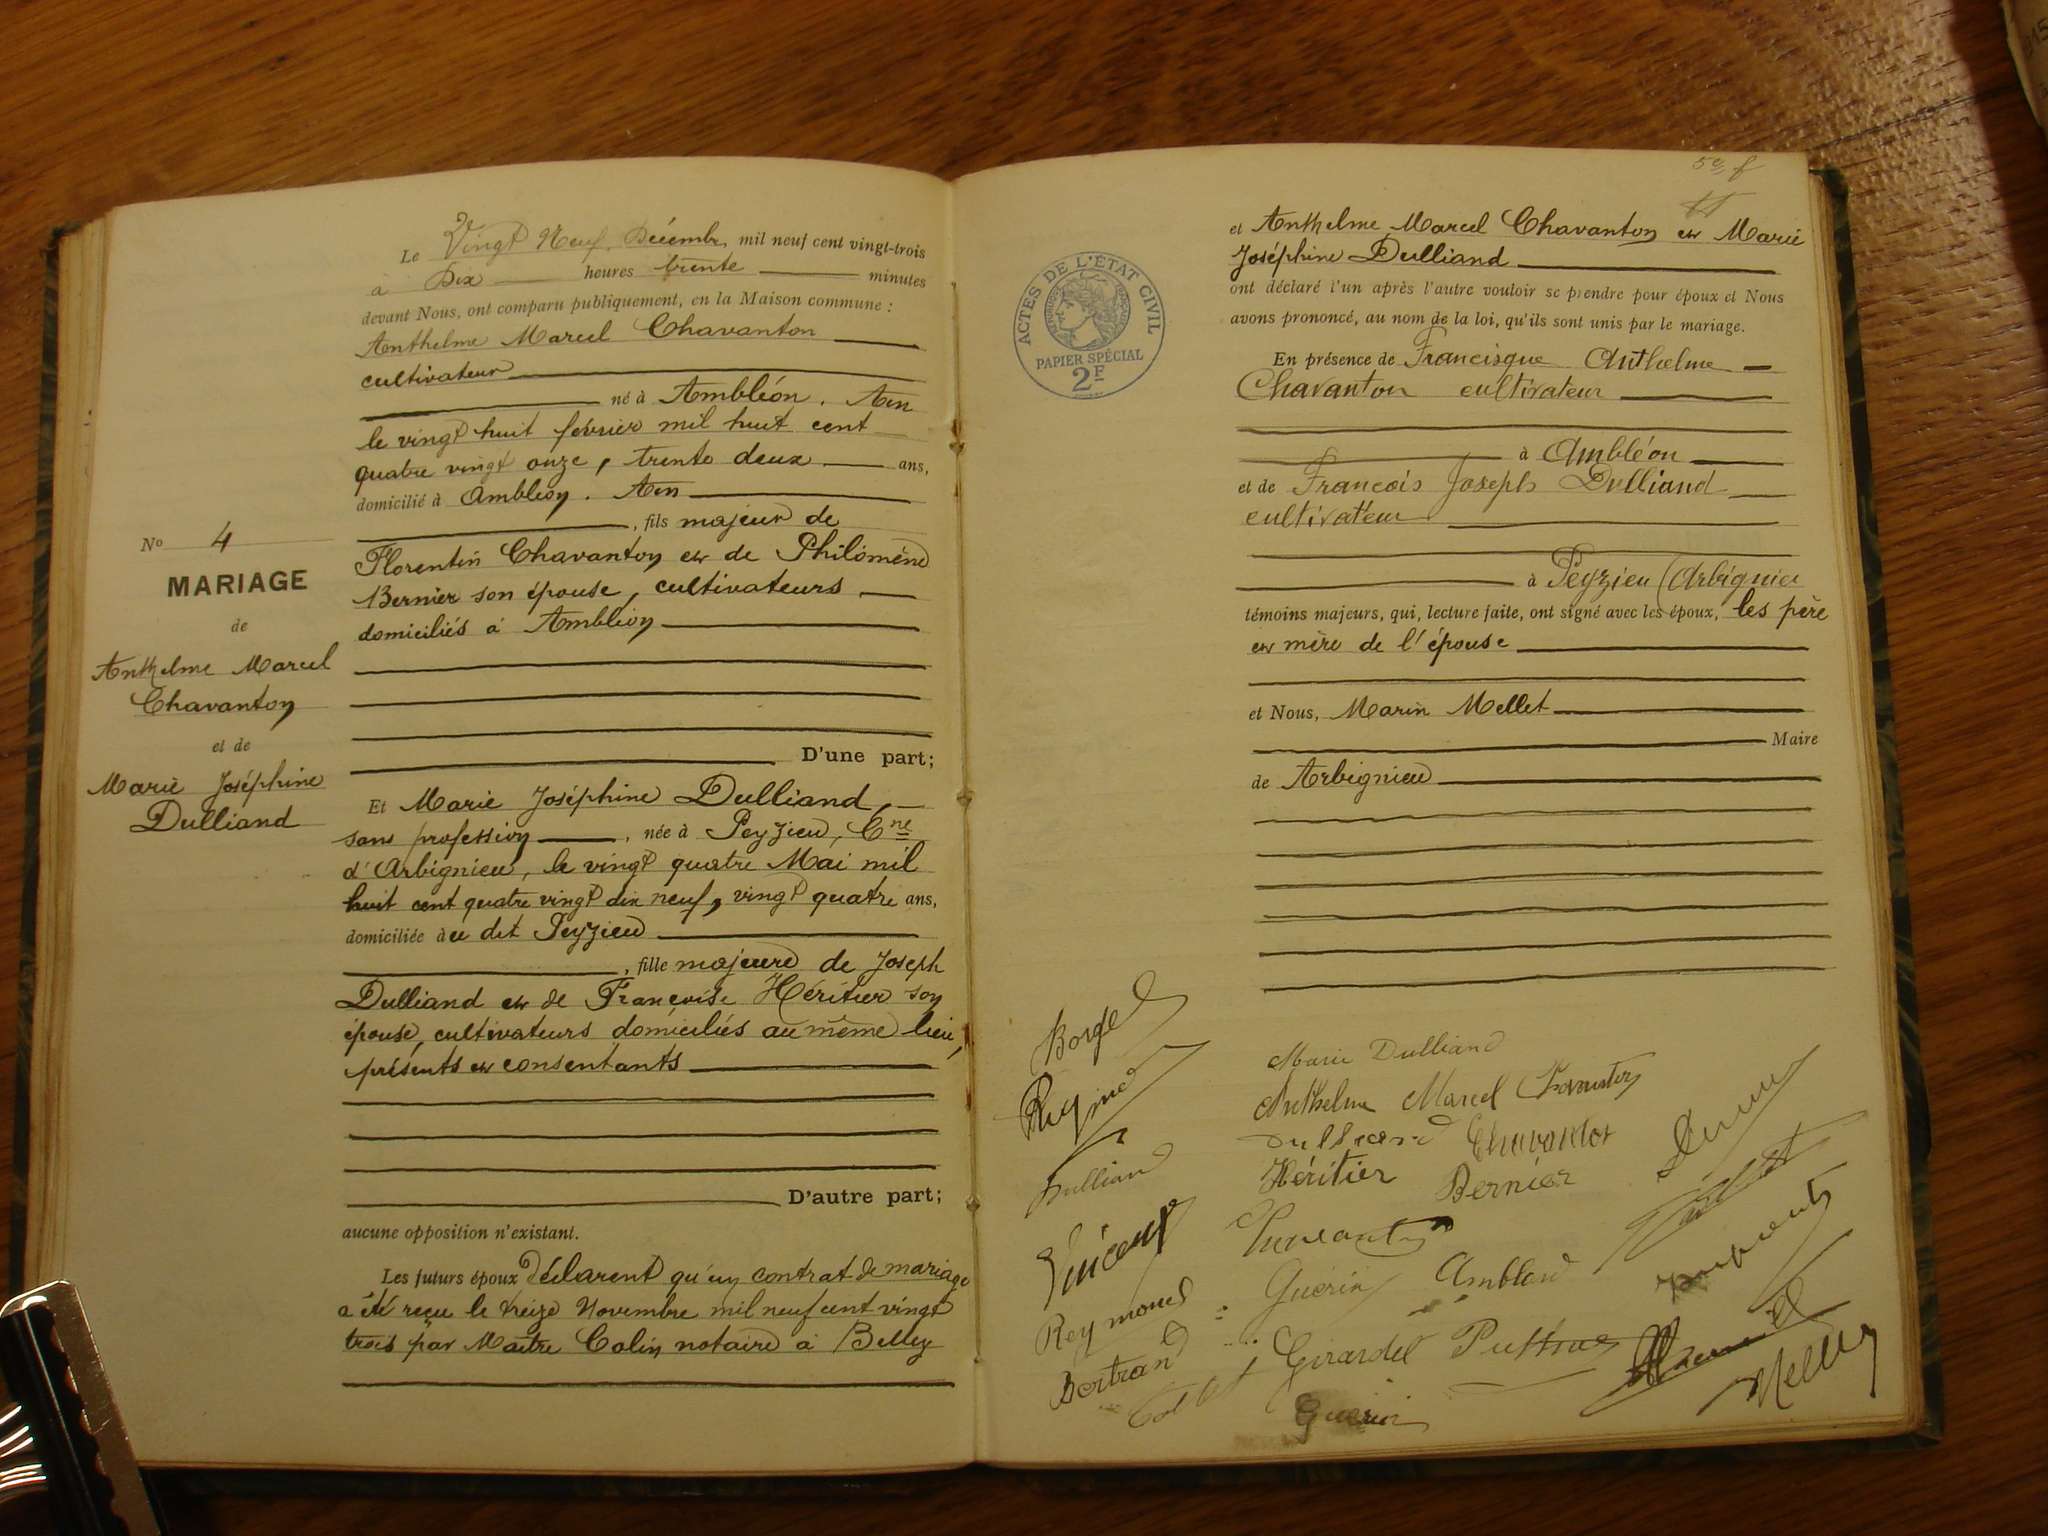 Le Vingt Neuf Décembre mil neuf cent vingt-trois
à Dix heures trente minutes
devant Nous, ont comparu publiquement, en la Maison commune :
Anthelme Marcel Chavanton
cultivateur
né à Ambléon. Ain
le vingt huit février mil huit cent
quatre vingt onze, trente deux ans,
domicilié à Ambléon. Ain
, fils majeur de
Florentin Chavanton et de Philomène
Bernier son épouse, cultivateurs
domiciliés à Ambléon
D'une part;
Et Marie Joséphine Dulliand,
sans profession, née à Peyzieu, Cne
d'Arbignieu, le vingt quatre Mai mil
huit cent quatre vingt dix neuf, vingt quatre ans,
domiciliée au dit Peyzieu
, fille majeure de Joseph
Dulliand et de Françoise Héritier son
épouse, cultivateurs domiciliés au même lieu,
présents et consentants
D'autre part;
aucune opposition n'existant.
Les futurs époux déclarent qu'un contrat de mariage
a été reçu le treize Novembre mil neuf cent vingt
trois par Maître Colin notaire à Belley
No 4
MARIAGE
de
Anthelme Marcel
Chavanton
et de
Marie Joséphine
Dulliand
ACTES DE L'ÉTAT CIVIL
PAPIER SPÉCIAL
2F
et Anthelme Marcel Chavanton et Marie
Joséphine Dulliand
ont déclaré l'un après l'autre vouloir se prendre pour époux et Nous
avons prononcé, au nom de la loi, qu'ils sont unis par le mariage.
En présence de Francisque Anthelme
Chavanton cultivateur
à Ambléon
et de François Joseph Dulliand
cultivateur
à Peyzieu (Arbignieu
témoins majeurs, qui, lecture faite, ont signé avec les époux, les père
et mère de l'épouse
et Nous, Marin Mellet
Maire
de Arbignieu
Marie Dulliand
Anthelme Marcel Chavanton
Dulliand Chavanton
Héritier Bernier
Guérin Amblard
Girardet
Guérin
Borgel
Dulliand
Vincent
Reymond
Bertrand
Mellet